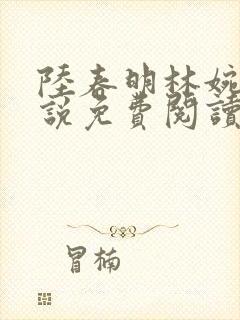 陸春明林婉
說免費閱讀
冒楠